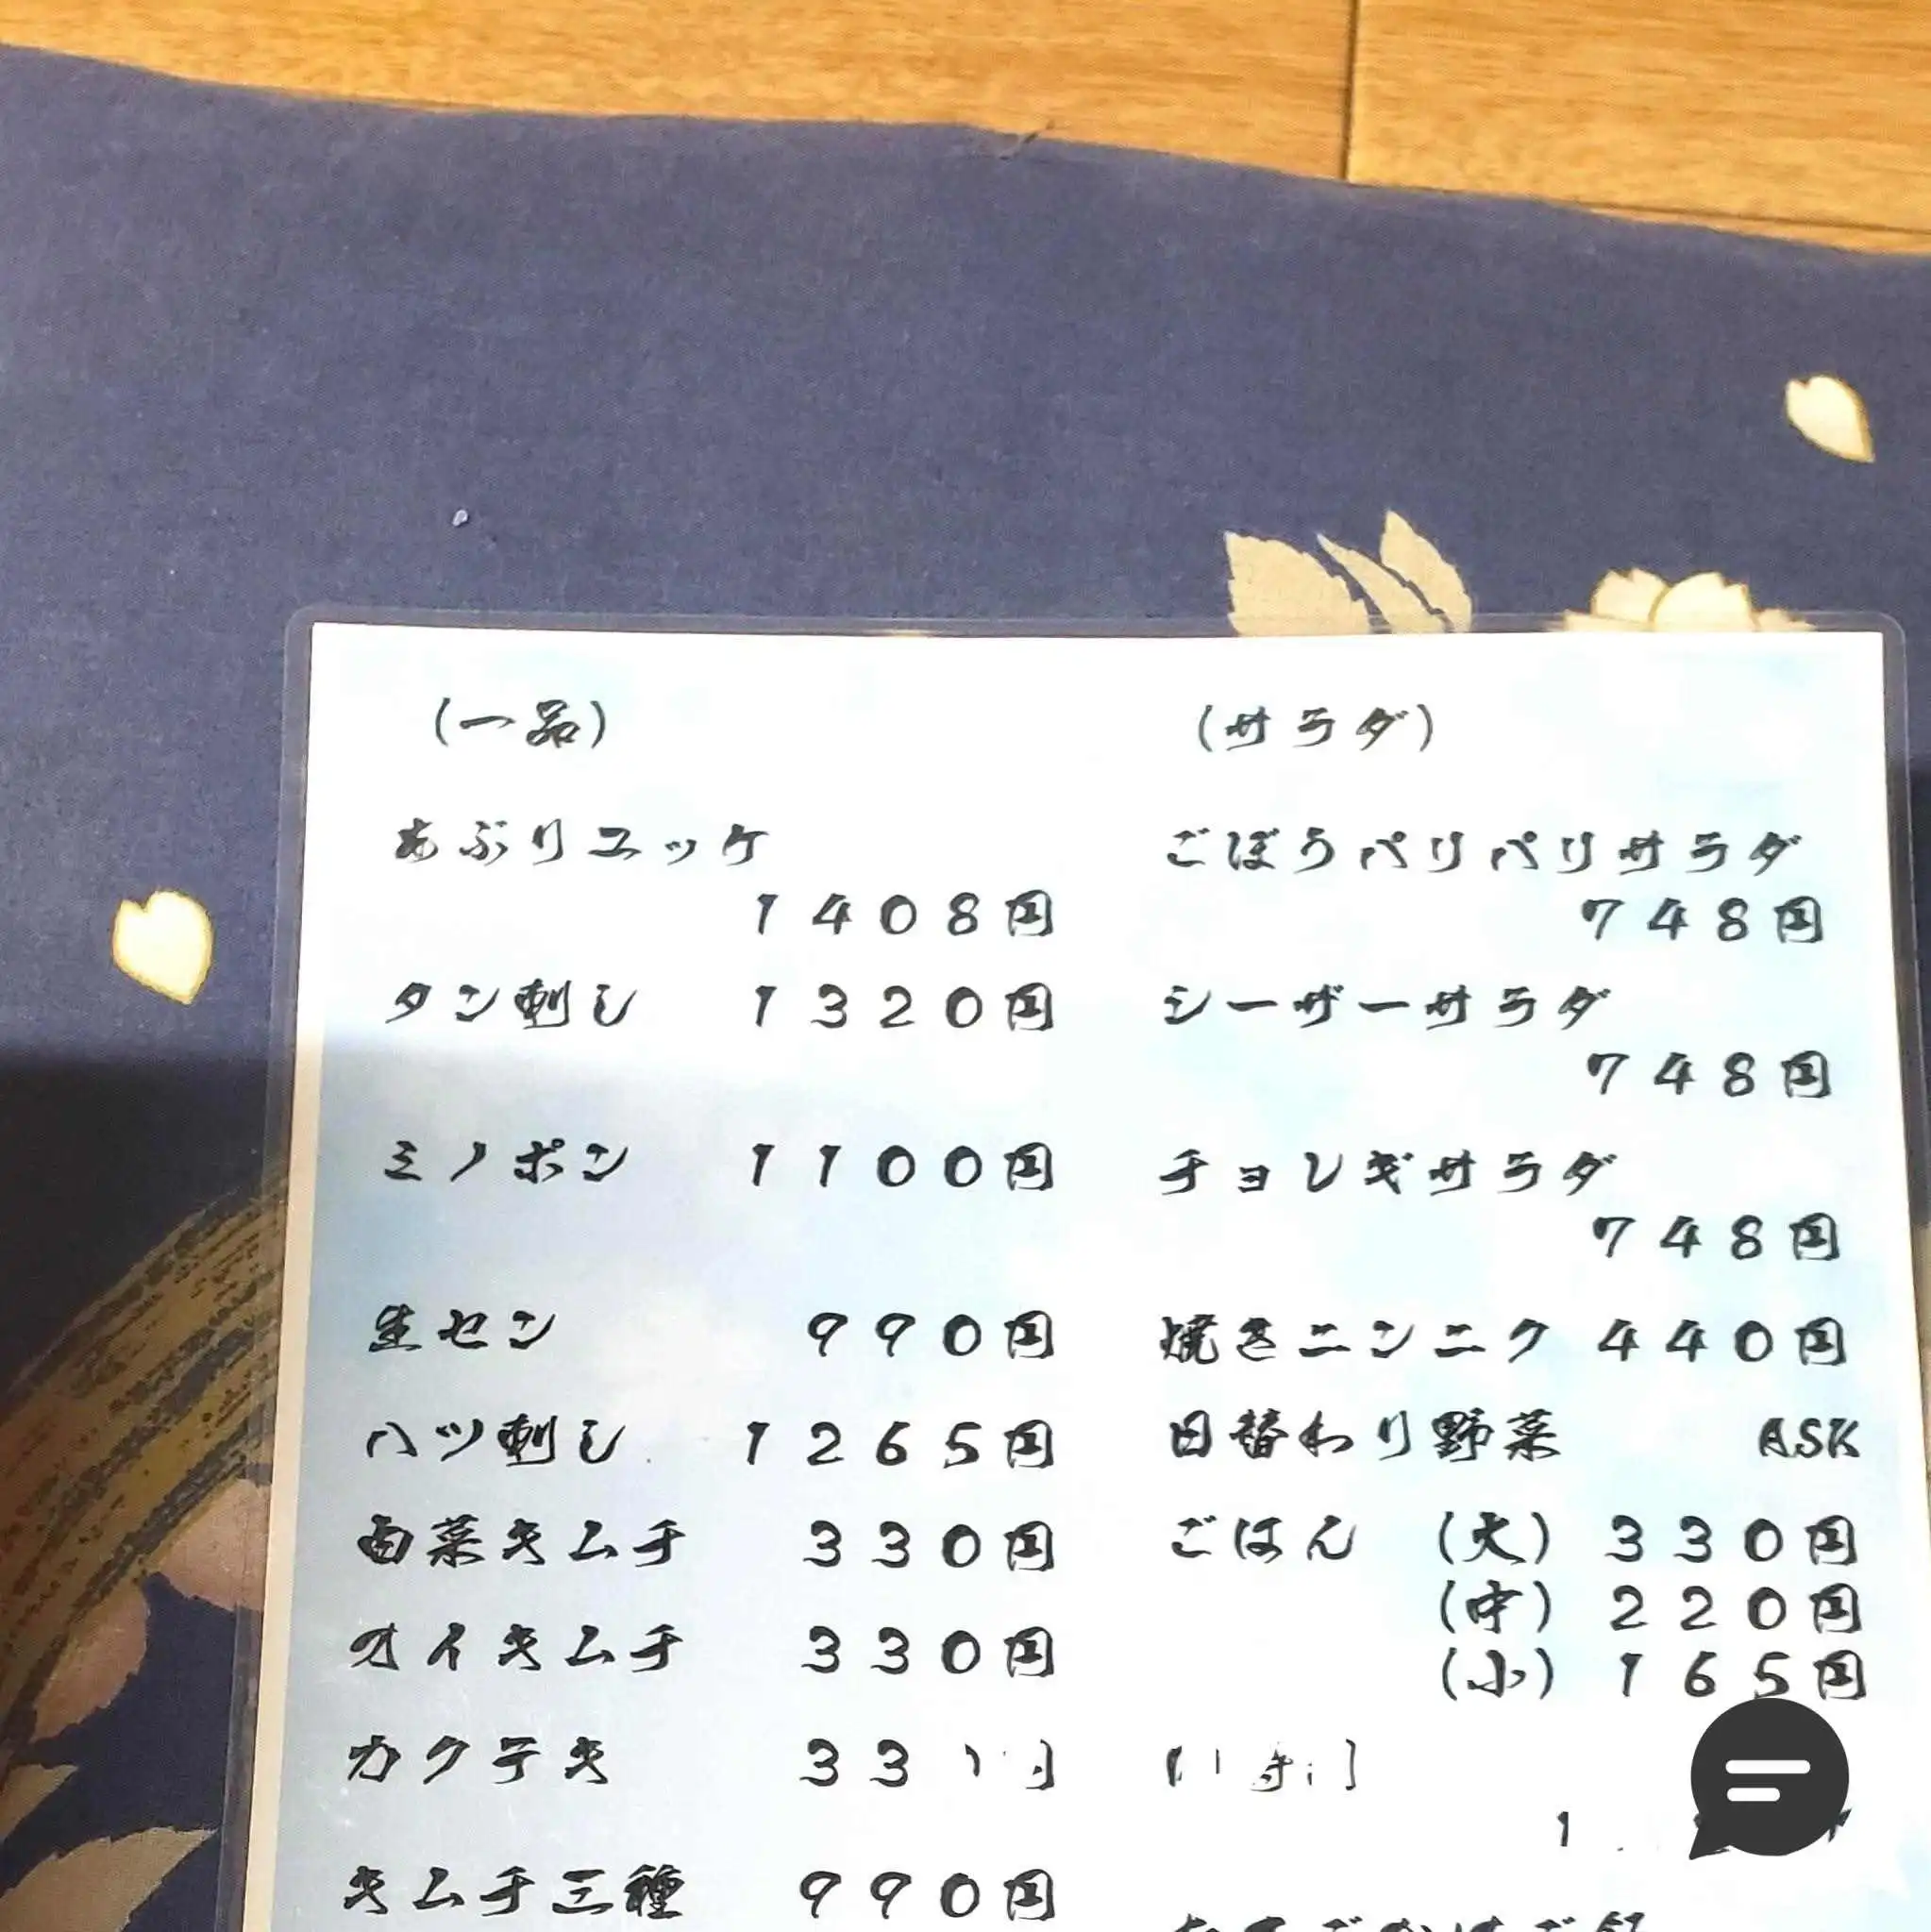 (一品)
あぶりユッケ
1408円
タン刺し 1320円
ミノポン 1100円
生セン 990円
ハツ刺し 1265円
白菜キムチ 330円
オイキムチ 330円
カクテキ 33
キムチ三種 990円
(サラダ)
ごぼうパリパリサラダ
748円
シーザーサラダ
748円
チョレギサラダ
748円
焼きニンニク 440円
日替わり野菜 ASK
ごはん (大) 330円
(中) 220円
(小) 165円